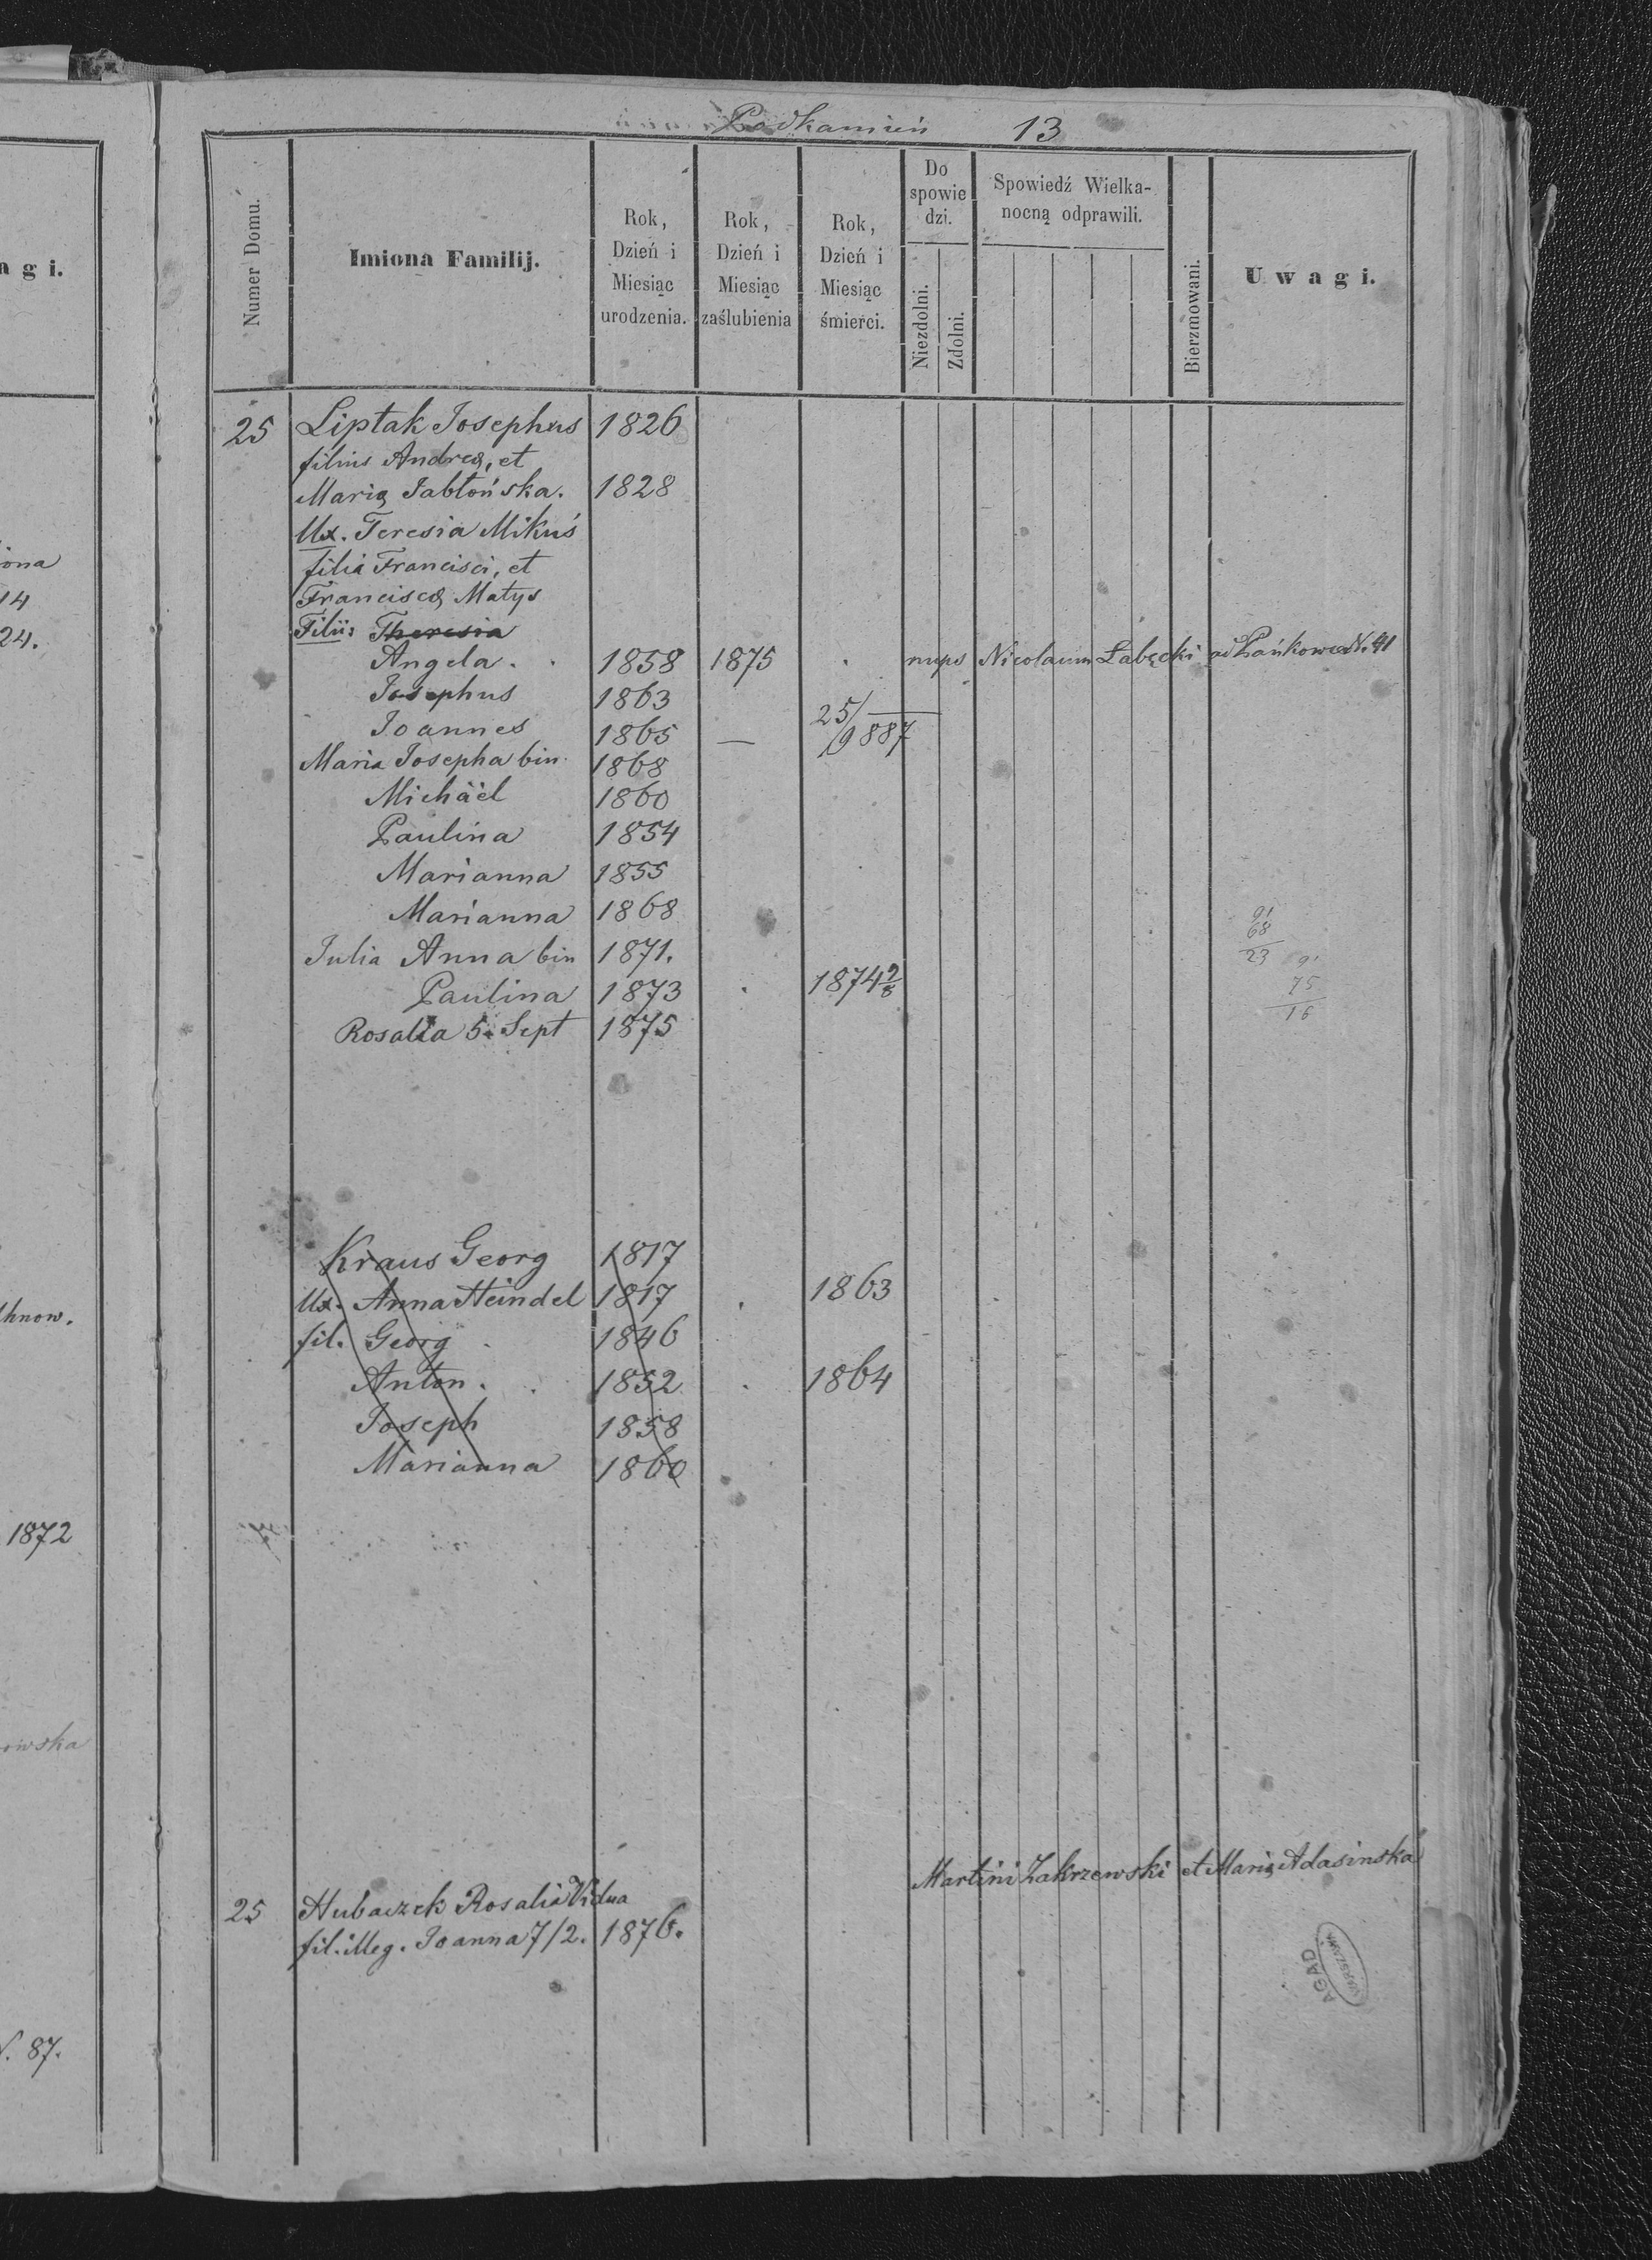 Podkamień 13
Numer Domu.
Imiona Familij.
Rok, Dzień i Miesiąc urodzenia.
Rok, Dzień i Miesiąc zaślubienia
Rok, Dzień i Miesiąc śmierci.
Do spowie dzi.
Niezdolni.
Zdolni.
Spowiedź Wielka-
nocną odprawili.
Bierzmowani.
Uwagi.
25 Liptak Josephus 1826
filius Andreæ, et
Mariæ Jabłońska. 1828
Ux. Teresia Mikuś
filia Francisci, et
Franciscæ Matys
Filii: Theresia
Angela . . 1858 1875 . nups Nicolaum Labęcki ad Pańkowce N. 41
Josephus 1863
Joannes 1865 — 25/9 887
Maria Josepha bin 1868
Michäel 1860
Paulina 1854
Marianna 1855
Marianna 1868
Julia Anna bin 1871.
Paulina 1873 . 1874 2/8
Rosalia 5. Sept 1875
91
68
23
91
75
16
Kraus Georg 1817
Ux. Anna Heindel 1817 . 1863
fil. Georg . 1846
Anton . . 1852 . 1864
Joseph 1858
Marianna 1860
Martini Zakrzewski et Mariæ Adasinska
25 Hubaczek Rosalia Vidua
fil. illeg. Joanna 7/2. 1876.
AGAD
WARSZAWA
agi.
14
24.
1872
owska
N. 87.